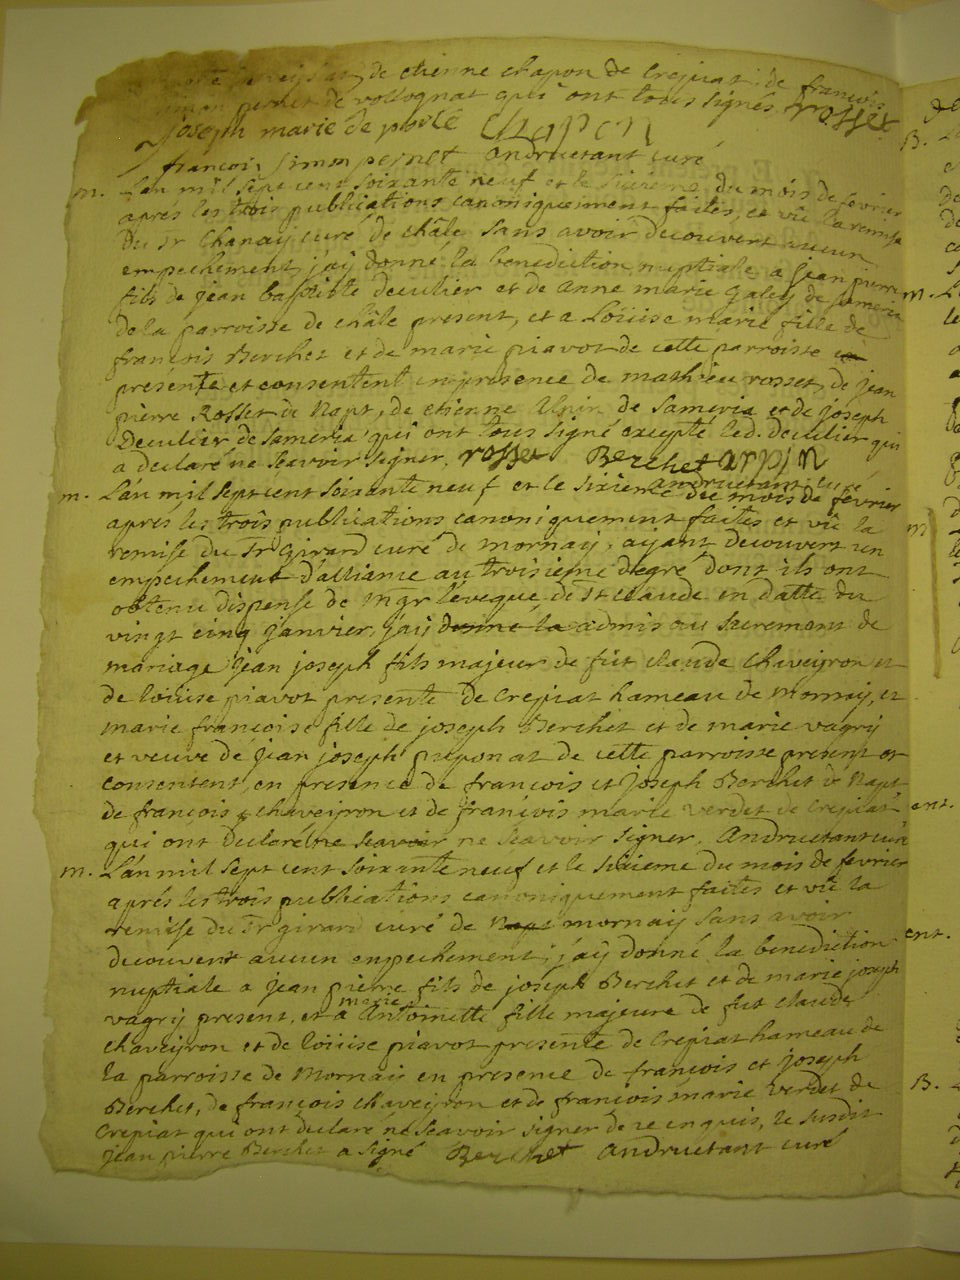 de etienne chapon de Crepiat, de françois
simon pernet de volognat qui ont tous signés. rosset
Joseph marie de porte Chapon
françois Simon pernet andruetant curé
m. L'an mil sept cent soixante neuf et le sixieme du mois de fevrier
aprés les trois publications canoniquement faites, et vû la remise
du Sr Chanay curé de châle sans avoir decouvert aucun
empechement, j'aÿ donné la benediction nuptiale a jean pierre
fils de jean baptiste deculier et de anne marie Galey de Sameria
de la parroisse de châle present, et a Loüise marie fille de
françois Berchet et de marie piavot de cette parroisse
présente et consentent en presence de mathieu rosset, de jean
pierre Rosset de Napt, de etienne Alpin de Samoria et de joseph
Deculier de Sameria qui ont tous signé excepté led. deculier qui
a declaré ne sçavoir signer. rosset Berchet arpin
andruetant curé
m. L'an mil sept cent soixante neuf et le sixieme du mois de fevrier
aprés les trois publications canoniquement faites et vû la
remise du Sr Girard curé de mornaÿ, ayant decouvert un
empechement d'alliance au troisieme degré dont ils ont
obtenu dispense de mgr l'eveque de St claude en datte du
vingt cinq janvier, j'aÿ donné la admis au sacrement de
mariage jean joseph fils majeur de fut claude chaveyron et
de loüise piavot presente de Crepiat hameau de Mornaÿ, et
marie françoise fille de joseph Berchet et de marie vagrÿ
et veuve de jean joseph preponat de cette parroisse present et
consentent, en presence de françois et Joseph Berchet de Napt
de françois chaveyron et de françois marie verdet de Crepiat
qui ont declaré ne sçavoir ne sçavoir signer. Andruetant curé
m. L'an mil sept cent soixante neuf et le sixieme du mois de fevrier
aprés les trois publications canoniquement faites et vû la
remise du Sr girard curé de Napt mornaÿ sans avoir
decouvert aucun enpechement, j'aÿ donné la benediction
nuptiale a jean pierre fils de joseph Berchet et de marie joseph
vagrÿ present, et a marie Antoinette fille majeure de fut claude
chaveyron et de loüise piavot presente de Crepiat hameau de
la parroisse de Mornaÿ en presence de françois et joseph
Berchet, de françois chaveyron et de françois marie verdet de
Crepiat qui ont declaré ne sçavoir signer de ce enquis, le susdit
jean pierre Berchet a signé Berchet andruetant curé
B.
m.
m
ent.
ent.
B.